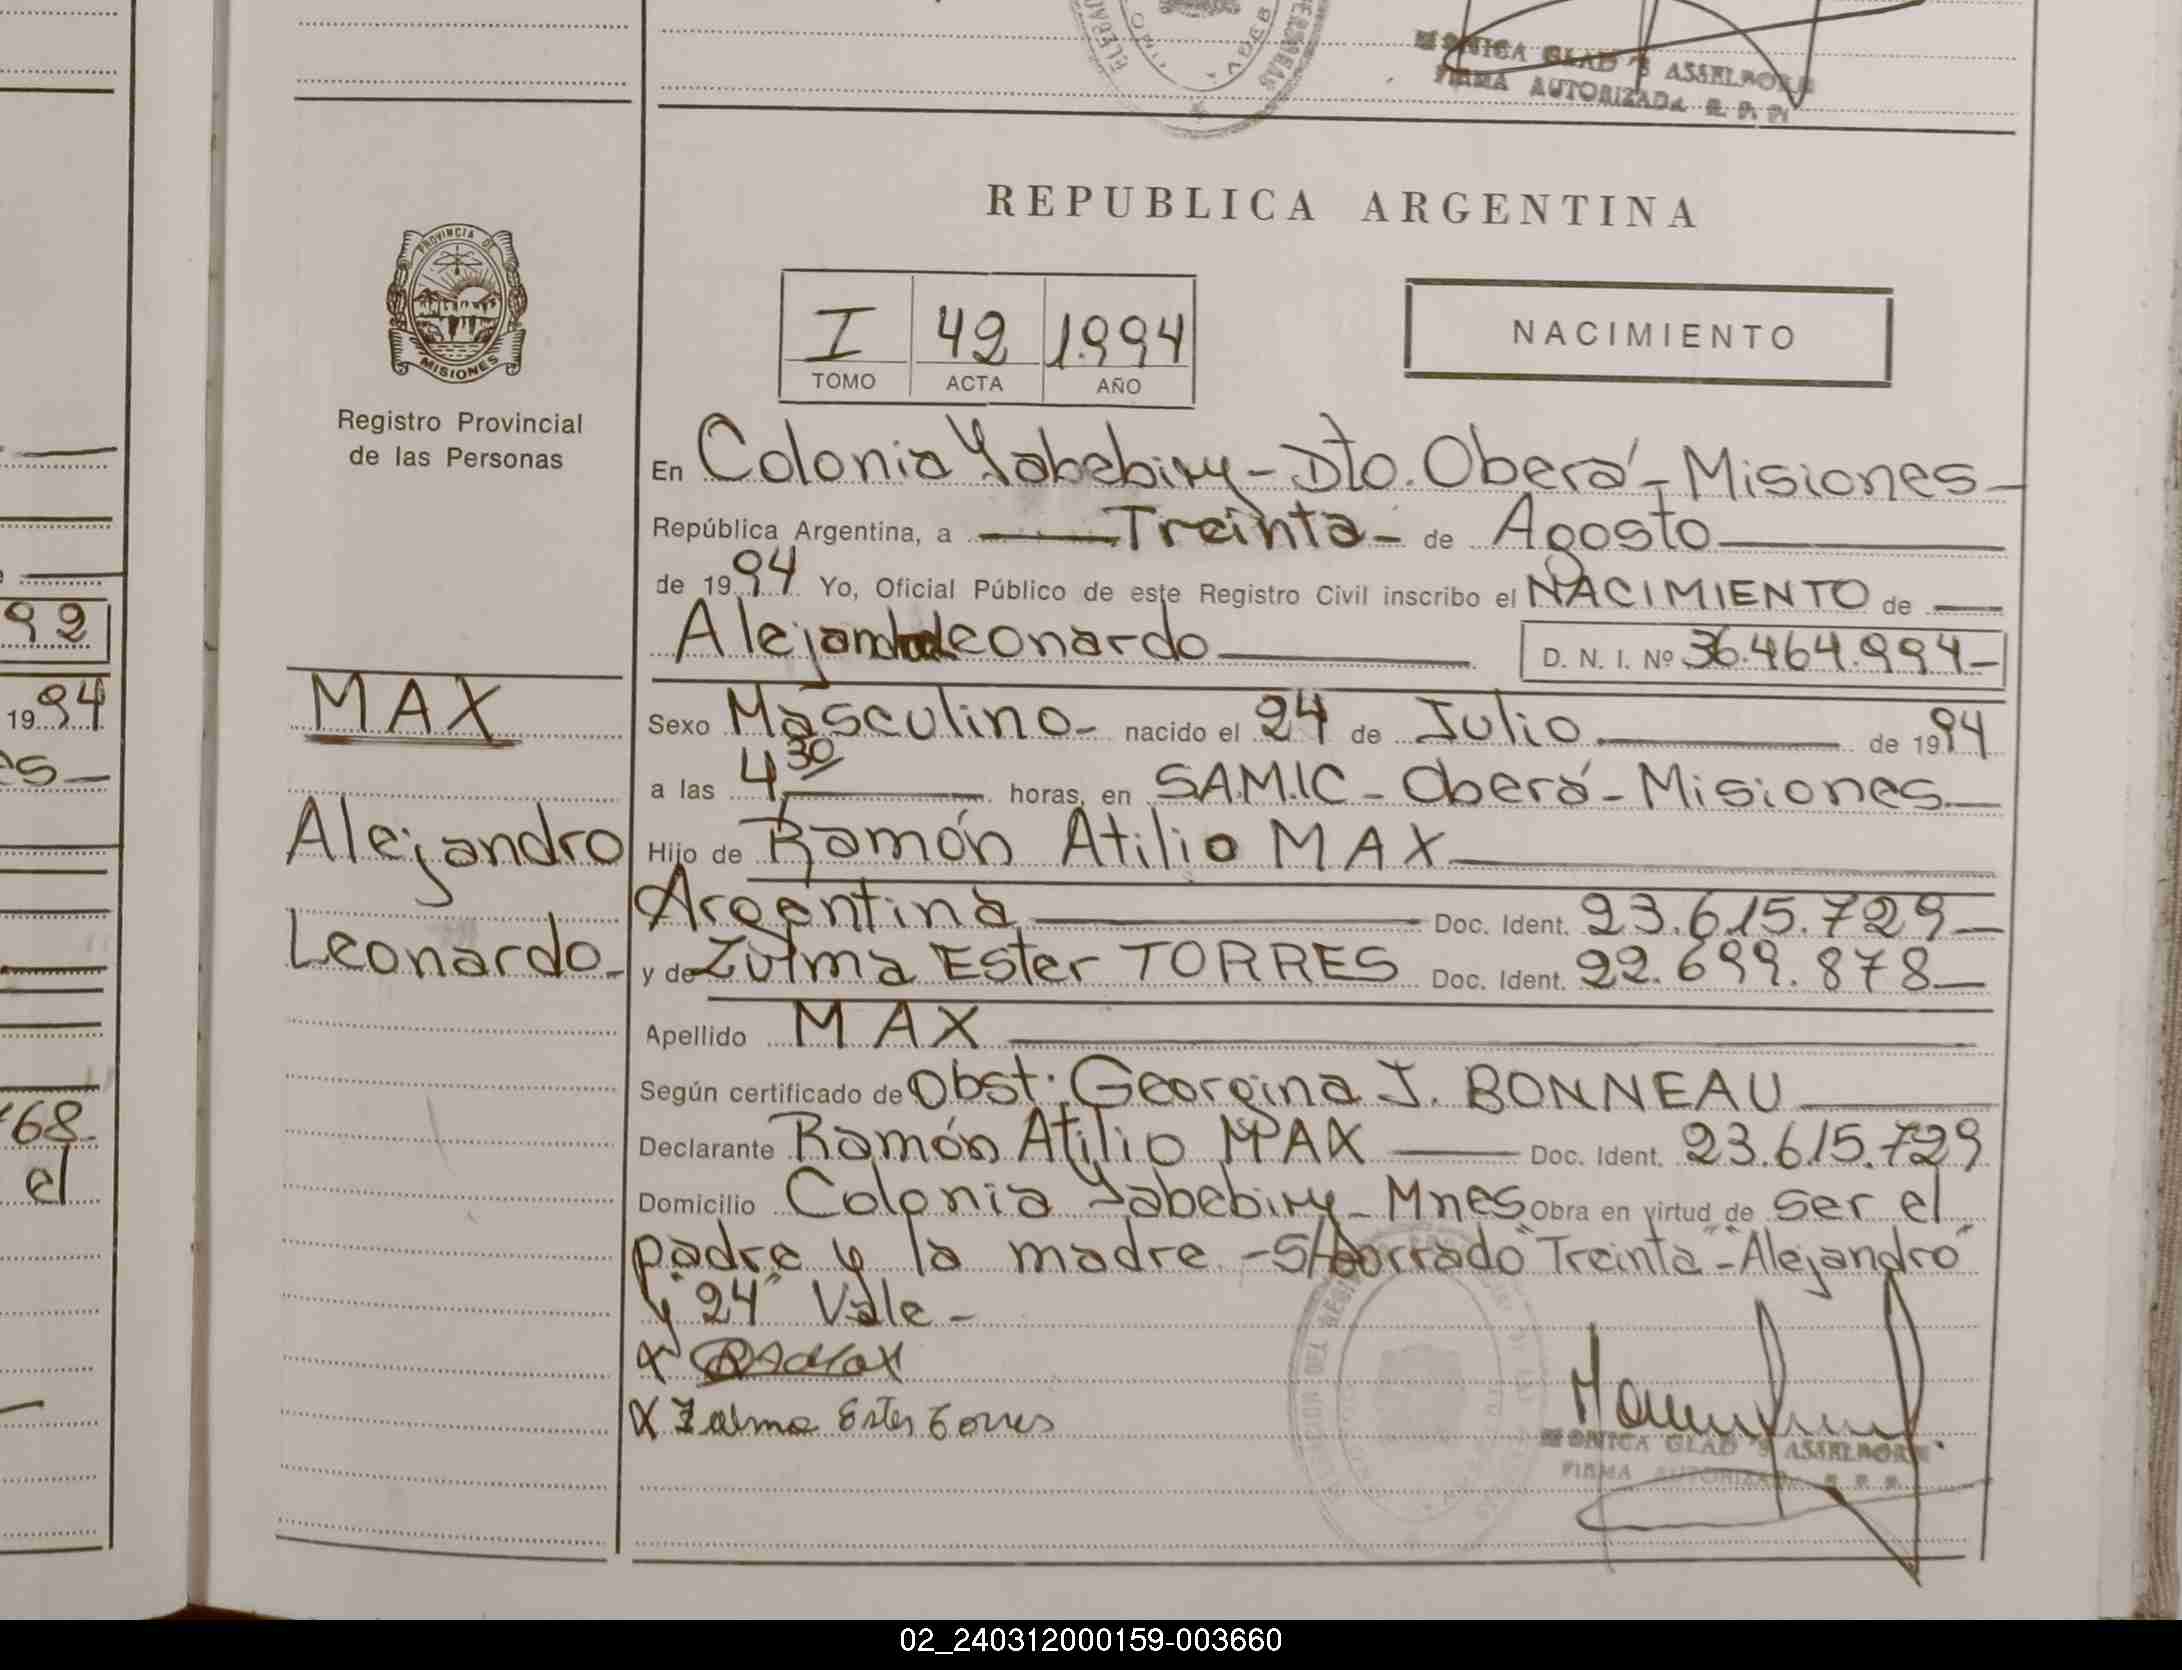 MONICA GLAD'S ASSELBORN
FIRMA AUTORIZADA R. P. P.
REPUBLICA ARGENTINA
PROVINCIA DE
MISIONES
Registro Provincial
de las Personas
I 42 1994
TOMO ACTA AÑO
NACIMIENTO
En Colonia Yabebiry - Dto. Oberá - Misiones -
República Argentina, a Treinta - de Agosto
de 1994 Yo, Oficial Público de este Registro Civil inscribo el NACIMIENTO de
Alejandro Leonardo D. N. I. Nº 36.464.994 -
MAX
Alejandro
Leonardo -
Sexo Masculino - nacido el 24 de Julio de 1994
a las 4 30 horas, en SAMIC - Oberá - Misiones
Hijo de Ramón Atilio MAX
Argentina Doc. Ident. 23.615.729 -
y de Zulma Ester TORRES Doc. Ident. 22.699.878 -
Apellido MAX
Según certificado de Obst. Georgina J. BONNEAU
Declarante Ramón Atilio MAX Doc. Ident. 23.615.729
Domicilio Colonia Yabebiry - Mnes Obra en virtud de ser el
padre y la madre - S/borrado "Treinta" - "Alejandro"
y "24" Vale -
X
X Zulma Ester Torres
MONICA GLAD'S ASSELBORN
FIRMA AUTORIZADA R. P. P.
92
1994
es -
68 -
el
02_240312000159-003660